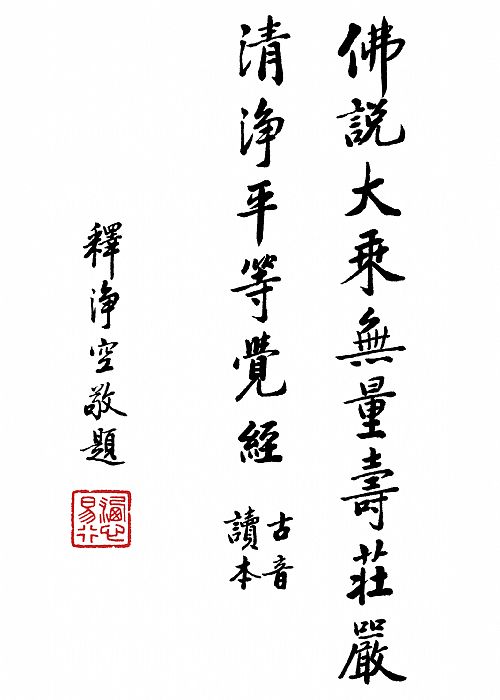 佛說大乘無量壽莊嚴
清淨平等覺經
古音
讀本
釋淨空敬題